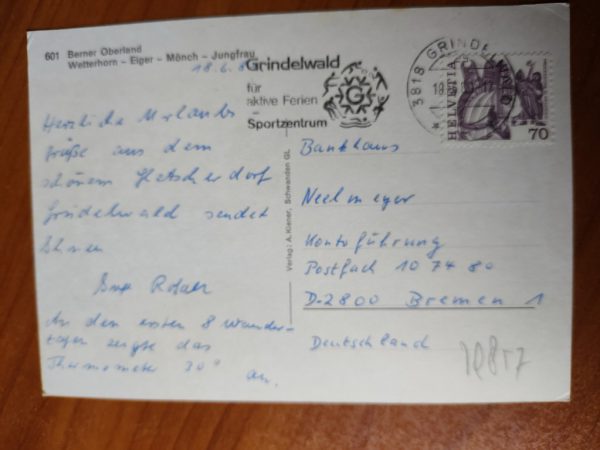 601 Berner Oberland
Wetterhorn – Eiger – Mönch – Jungfrau
18.6.8
Grindelwald
für
aktive Ferien
Sportzentrum
G
3818 GRINDELWALD
HELVETIA
70
Herzliche Urlaubs
grüße aus dem
schönem Gletscherdorf
Grindelwald sendet
Ihnen
An den ersten 8 Wander-
tagen zeigte das
Thermometer 30° an.
Verlag: A. Kiener, Schwanden GL
Bankhaus
Neelmeyer
Kontoführung
Postfach 10 74 80
D-2800 Bremen 1
Deutschland